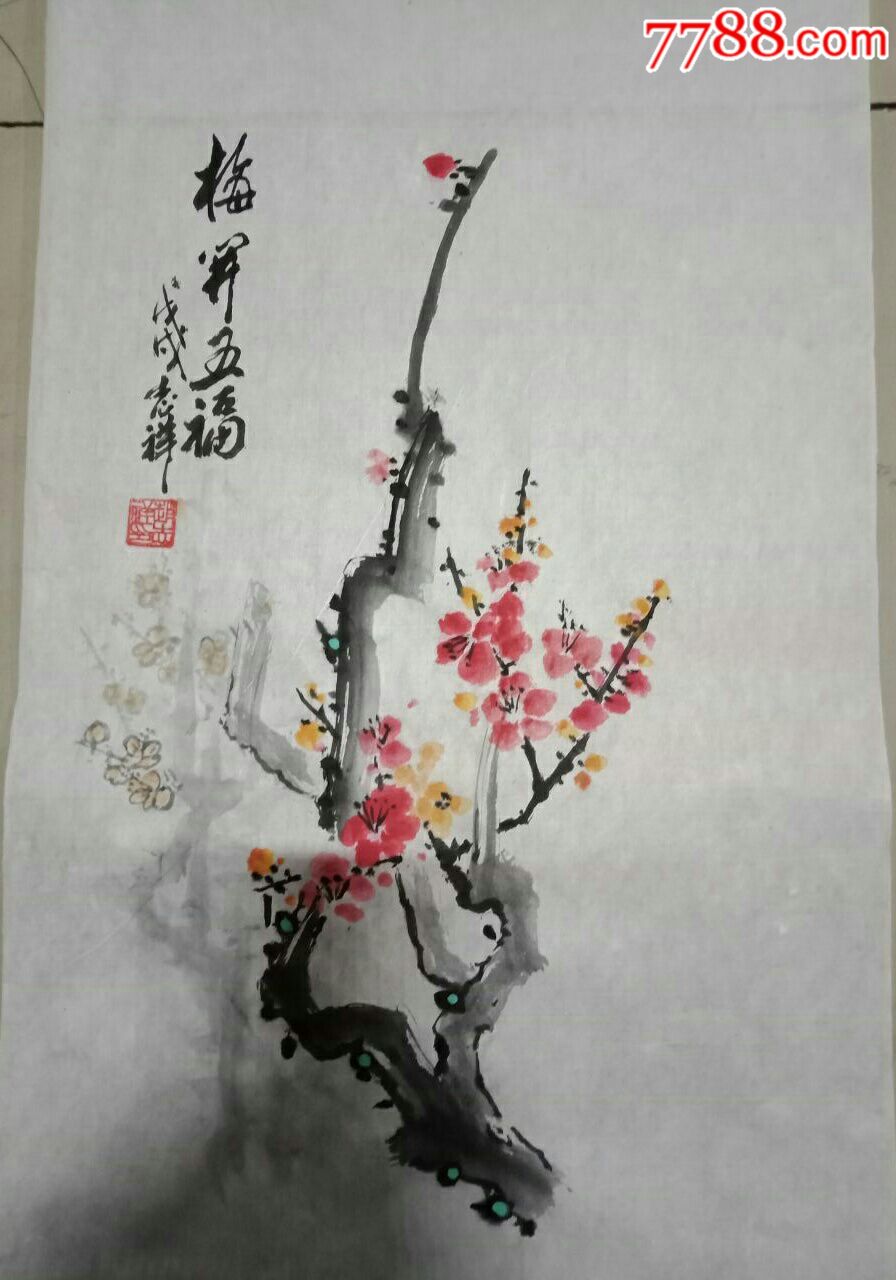 7788.com
梅開五福
戊戌志祥